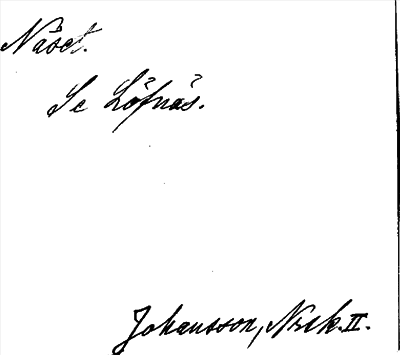 Näset.
Se Löfnäs.
Johansson, Nrek. II.